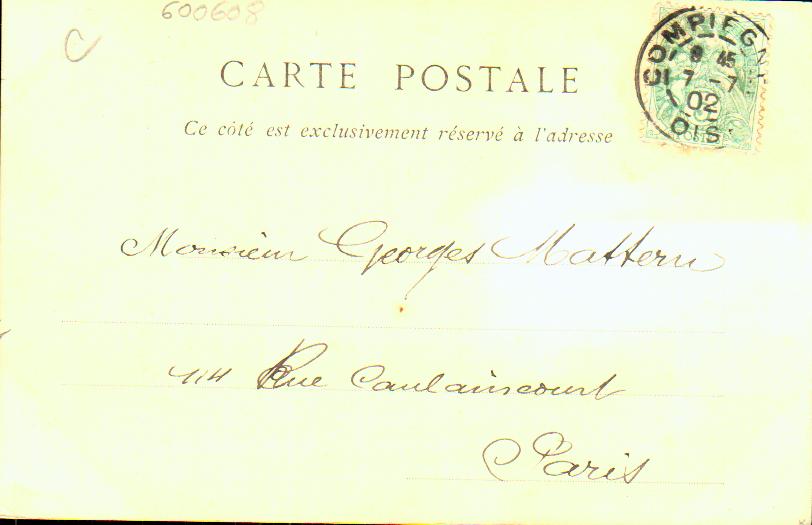 600608
C
CARTE POSTALE
Ce côté est exclusivement réservé à l'adresse
COMPIEGNE
8 45
7 - 7
02
OISE
Monsieur Georges Mattern
114 Rue Caulaincourt
Paris